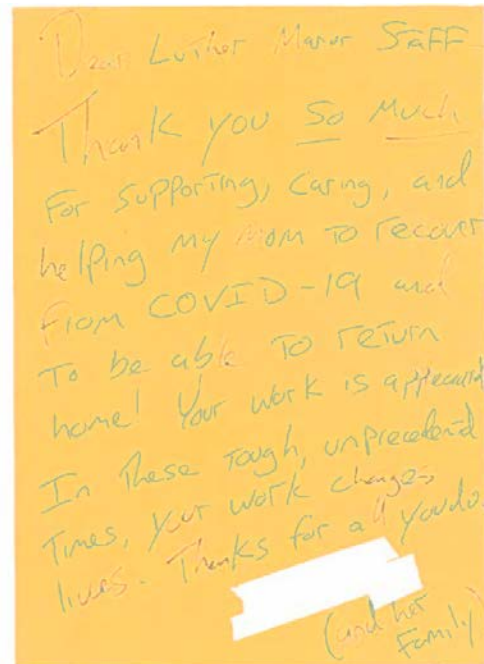 Dear Luther Manor Staff
Thank you so much
For supporting, caring, and
helping my mom to recover
from COVID-19 and
to be able to return
home! Your work is
In these tough,
times, your work changes
lives. Thanks for all you do.
(and her
Family)